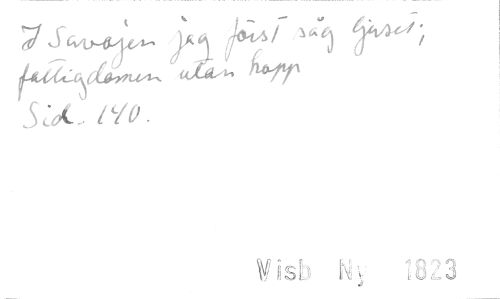 I Savojen jag först såg ljuset;
fattigdomen utan hopp
Sid. 140.
Visb Ny 1823